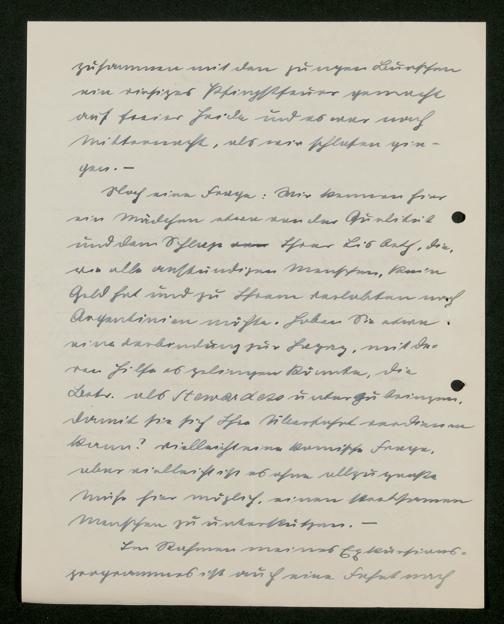 zusammen mit den jungen Burschen
ein riesiges Pfingstfeuer gemacht
auf freier Heide und es war nach
Mitternacht, als wir schlafen gin-
gen. —
Noch eine Frage: Wir kennen hier
ein Mädchen etwa von der Qualität
und dem Schlage Ihrer Lisbeth, die,
wie alle anständigen Menschen, kein
Geld hat und zu Ihrem Verlobten nach
Argentinien möchte. Haben Sie etwa
eine Verbindung zur Hapag, mit de-
ren Hilfe es gelingen könnte, die
Betr. als Stewardess unterzubringen,
damit sie sich Ihre Überfahrt verdienen
kann? Vielleicht eine komische Frage,
aber vielleicht ist es ohne allzu große
Mühe hier möglich, einen strebsamen
Menschen zu unterstützen. —
Im Rahmen meines Exkursions-
programmes ist auch eine Fahrt nach